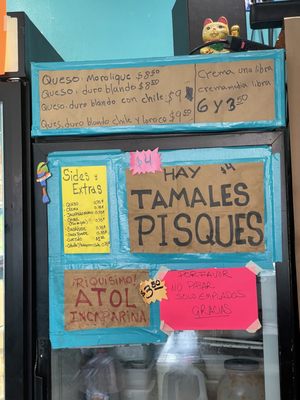 Queso Morolique $8.50
Queso, duro blando $8.50
Queso, duro blando con chile $9
Ques, duro blando chile y loroco $9.50
Crema una libra
crema media libra
6 y 3.50
$4
Sides y
Extras
HAY $4
TAMALES
PISQUES
¡RIQUISIMO!
ATOL
INCAPARINA
$3.50
POR FAVOR
NO PASAR
SOLO EMPLEADOS
GRACIAS